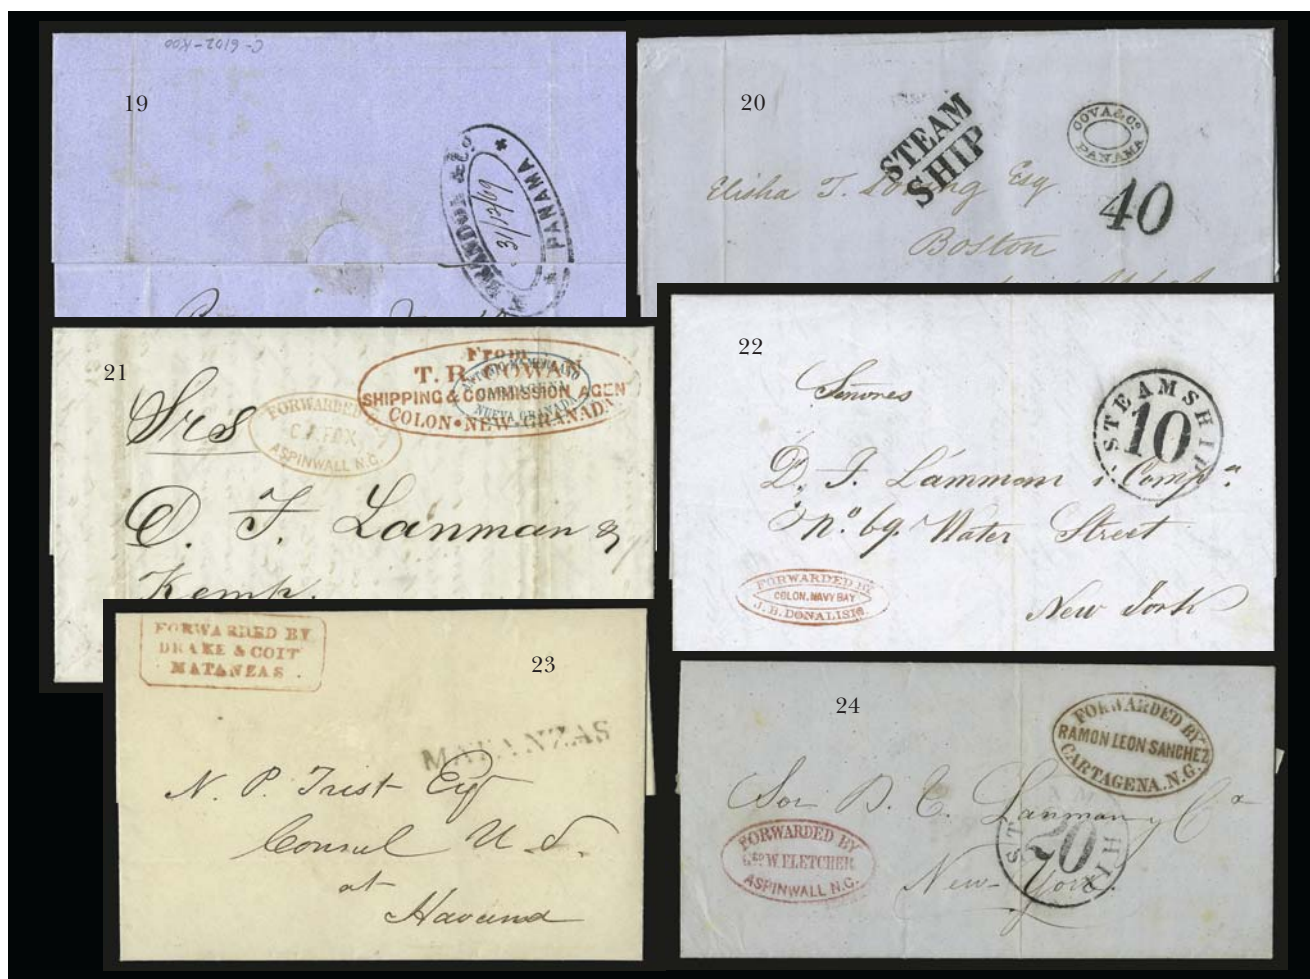 C-6102-K00
19
BRANDON & Co.
PANAMA
20
STEAM
SHIP
COVA & Co
PANAMA
40
Elisha T. Loring Esq
Boston
21
From
T. R. COWAN
SHIPPING & COMMISSION AGEN
COLON • NEW. GRANADA
CARTAGENA
NUEVA GRANADA
FORWARDED BY
C. A. FOX
ASPINWALL N.G.
Srs
D. T. Lanman &
Kemp.
22
STEAMSHIP
10
Señores
D. T. Lammom i Compª
no. 69. Water Street
New York
FORWARDED BY
COLON. NAVY BAY
J. B. DONALISIO.
23
FORWARDED BY
DRAKE & COIT
MATANZAS.
MATANZAS
N. P. Trist Esq
Consul U. S.
at
Havana
24
FORWARDED BY
RAMON LEON SANCHEZ
CARTAGENA. N.G.
Sor D. T. Lanman y Cª
New-York.
STEAMSHIP
20
FORWARDED BY
Geo W. FLETCHER
ASPINWALL N.G.